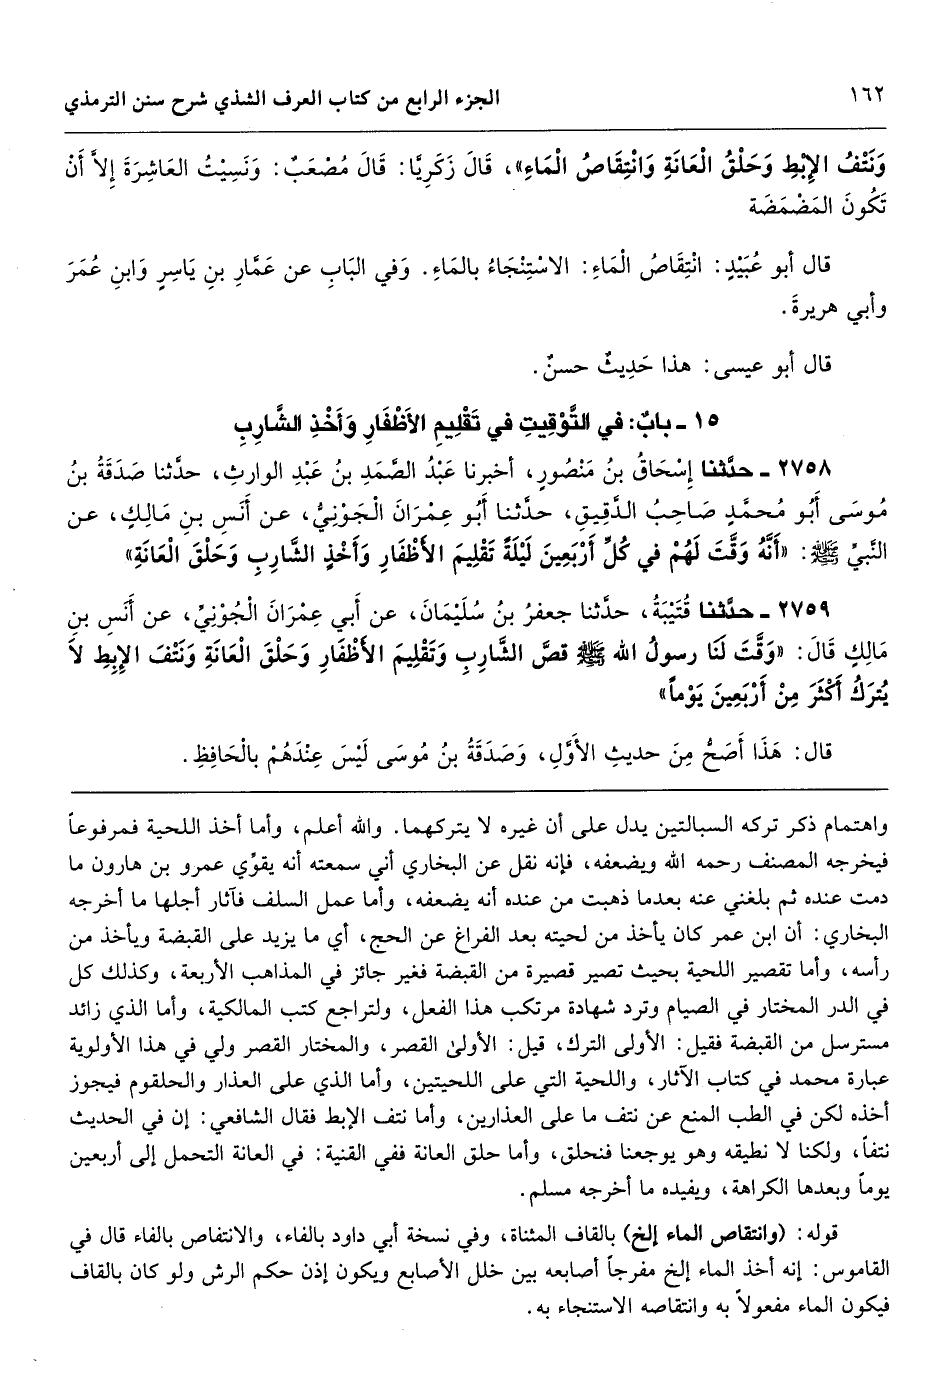 ١٦٢
الجزء الرابع من كتاب العرف الشذي شرح سنن الترمذي
وَنَتْفُ الإِبْطِ وَحَلْقُ الْعَانَةِ وَانْتِقَاصُ الْمَاءِ»، قَالَ زَكَرِيَّا: قَالَ مُصْعَبٌ: وَنَسِيْتُ العَاشِرَةَ إِلاَّ أَنْ
تَكُونَ المَضْمَضَة
قال أبو عُبَيْدٍ: انْتِقَاصُ الْمَاءِ: الاسْتِنْجَاءُ بالمَاءِ. وَفي البَابِ عن عَمَّارِ بنِ يَاسِرٍ وَابنِ عُمَرَ
وأبي هريرةَ.
قال أبو عيسى: هذا حَدِيثٌ حسنٌ.
١٥ ـ بابٌ: في التَّوْقِيتِ في تَقْلِيمِ الأَظْفَارِ وَأَخْذِ الشَّارِبِ
٢٧٥٨ ـ حدَّثنا إِسْحَاقُ بنُ مَنْصُورٍ، أخبرنا عَبْدُ الصَّمَدِ بنُ عَبدِ الوارثِ، حدَّثنا صَدَقَةُ بنُ
مُوسَى أَبُو مُحمَّدٍ صَاحِبُ الدَّقِيقِ، حدَّثنا أَبُو عِمْرَانَ الْجَوْنِيُّ، عن أَنَسِ بنِ مَالِكٍ، عن
النَّبيِّ ﷺ: «أَنَّهُ وَقَّتَ لَهُمْ في كُلِّ أَرْبَعِينَ لَيْلَةً تَقْلِيمَ الأَظْفَارِ وَأَخْذِ الشَّارِبِ وَحَلْقَ الْعَانَةِ»
٢٧٥٩ ـ حدَّثنا قُتَيْبَةُ، حدَّثنا جعفرُ بنُ سُلَيْمَانَ، عن أَبي عِمْرَانَ الْجُوْنِيِّ، عن أَنَسِ بنِ
مَالِكٍ قَالَ: «وَقَّتَ لَنَا رسولُ الله ﷺ قصَّ الشَّارِبِ وَتَقْلِيمَ الأَظْفَارِ وَحَلْقَ الْعَانَةِ وَنَتْفَ الإِبِطِ لاَ
يُتَرَكُ أَكْثَرَ مِنْ أَرْبَعِينَ يَوْماً»
قال: هَذَا أَصَحُّ مِنَ حديثِ الأَوَّلِ، وَصَدَقَةُ بنُ مُوسَى لَيْسَ عِنْدَهُمْ بالْحَافِظِ.
واهتمام ذكر تركه السبالتين يدل على أن غيره لا يتركهما. والله أعلم، وأما أخذ اللحية فمرفوعاً
فيخرجه المصنف رحمه الله ويضعفه، فإنه نقل عن البخاري أني سمعته أنه يقوِّي عمرو بن هارون ما
دمت عنده ثم بلغني عنه بعدما ذهبت من عنده أنه يضعفه، وأما عمل السلف فآثار أجلها ما أخرجه
البخاري: أن ابن عمر كان يأخذ من لحيته بعد الفراغ عن الحج، أي ما يزيد على القبضة ويأخذ من
رأسه، وأما تقصير اللحية بحيث تصير قصيرة من القبضة فغير جائز في المذاهب الأربعة، وكذلك كل
في الدر المختار في الصيام وترد شهادة مرتكب هذا الفعل، ولتراجع كتب المالكية، وأما الذي زائد
مسترسل من القبضة فقيل: الأولى الترك، قيل: الأولىٰ القصر، والمختار القصر ولي في هذا الأولوية
عبارة محمد في كتاب الآثار، واللحية التي على اللحيتين، وأما الذي على العذار والحلقوم فيجوز
أخذه لكن في الطب المنع عن نتف ما على العذارين، وأما نتف الإبط فقال الشافعي: إن في الحديث
نتفاً، ولكنا لا نطيقه وهو يوجعنا فنحلق، وأما حلق العانة ففي القنية: في العانة التحمل إلى أربعين
يوماً وبعدها الكراهة، ويفيده ما أخرجه مسلم.
قوله: (وانتقاص الماء إلخ) بالقاف المثناة، وفي نسخة أبي داود بالفاء، والانتفاص بالفاء قال في
القاموس: إنه أخذ الماء إلخ مفرجاً أصابعه بين خلل الأصابع ويكون إذن حكم الرش ولو كان بالقاف
فيكون الماء مفعولاً به وانتقاصه الاستنجاء به.